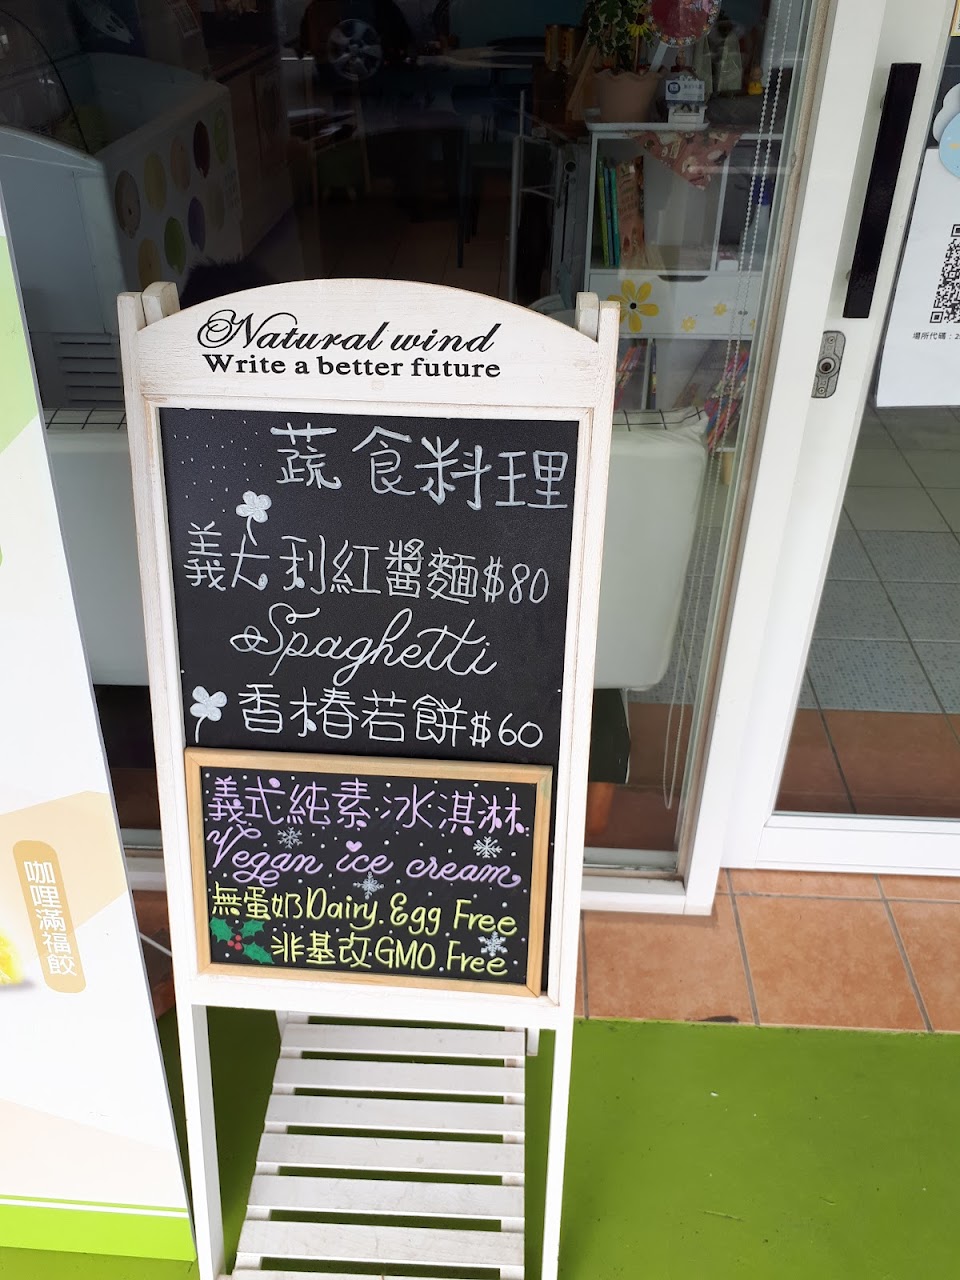 Natural wind
Write a better future
蔬食料理
義大利紅醬麵$80
Spaghetti
香椿若餅$60
義式純素冰淇淋
Vegan ice cream
無蛋奶Dairy.Egg Free
非基改GMO.Free
咖哩滿福餃
場所代碼：2